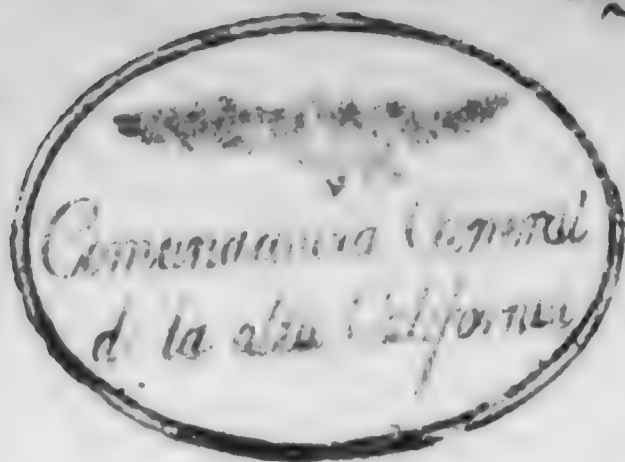 Comandancia General
d la alta California